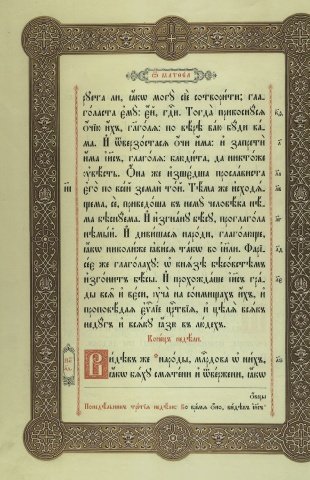 Ѿ матѳеа
рꙋета ли, ꙗ҆́кѡ могꙋ̀ сїѐ сотвори́ти; гла-
го́ласта є҆мꙋ̀: є҆́й, гдⷭ҇и. Тогда̀ прикоснꙋ́сѧ
ѻ҆́чїю и҆́хъ, гл҃го́лѧ: по вѣ́рѣ ва́ю бꙋ́ди ва́-
ма. И҆ ѿверзо́стасѧ ѻ҆́чи и҆́ма: и҆ запретѝ
и҆́ма і҆и҃съ, глаго́лѧ: блюди́та, да никто́же
ᲂу҆вѣ́сть. Ѻ҆на́ же и҆зше́дша просла́виста
є҆го̀ по все́й землѝ то́й. Тѣ́ма же и҆сходѧ́-
щема, сѐ, приведо́ша къ немꙋ̀ человѣ́ка нѣ́-
ма бѣснꙋ́ема. И҆ и҆згна́нꙋ бѣ́сꙋ, проглаго́ла
нѣмы́й. И҆ диви́шасѧ наро́ди, глаго́люще,
ꙗ҆́кѡ николи́же ꙗ҆ви́сѧ та́кѡ во і҆и҃ли. Фарїсе́-
є҆ же глаго́лахꙋ: ѡ҆ кнѧ́зѣ бѣсо́встѣмъ
и҆зго́нитъ бѣ́сы. И҆ прохожда́ше і҆и҃съ гра́-
ды всѧ̑ и҆ вє́си, ᲂу҆чѧ̀ на со́нмищахъ и҆́хъ, и҆
проповѣ́даѧ є҆ѵⷢ҇лїе црⷭ҇твїѧ, и҆ цѣлѧ̀ всѧ́къ
недꙋ́гъ и҆ всѧ́кꙋ ꙗ҆́зю въ лю́дехъ.
Коне́цъ недѣ́ли.
Ви́дѣвъ же наро́ды, млⷭ҇рдова ѡ҆ ни́хъ,
ꙗ҆́кѡ бѧ́хꙋ смѧте́ни и҆ ѿве́ржени, ꙗ҆́кѡ
ѻ҆́вцы